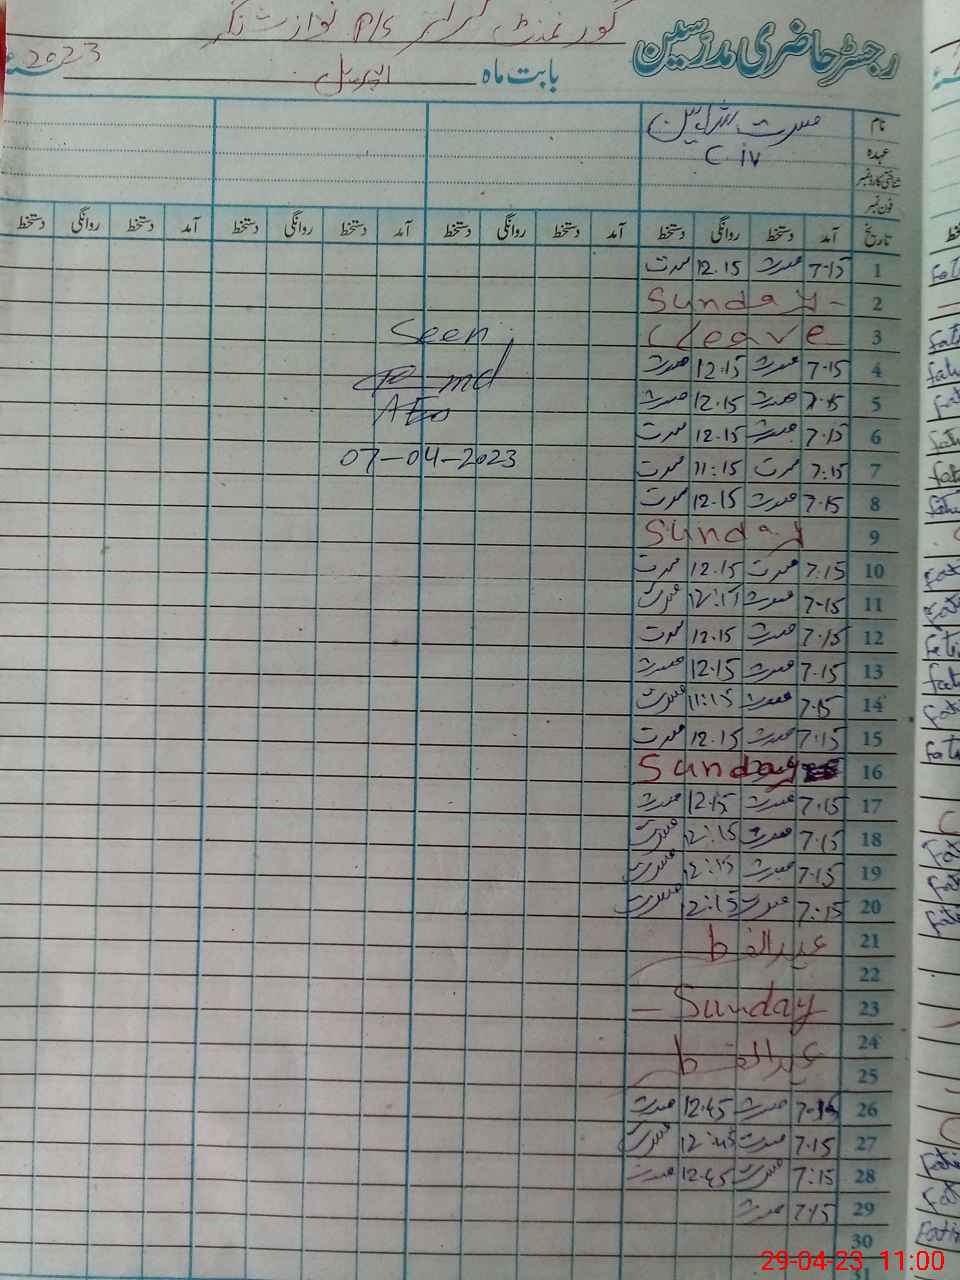 رجسٹر حاضری مدرسین
گورنمنٹ گرلز P/S نوازش نگر
بابت ماہ اپریل 2023
نام مسرت
عہدہ C iv
شناختی کارڈ نمبر
فون نمبر
تاریخ آمد دستخط روانگی دستخط آمد دستخط روانگی دستخط آمد دستخط روانگی دستخط
1 7-15 مسرت 12.15 مسرت
2 Sunday -
3 C/eave
Seen
4 7-15 مسرت 12.15 مسرت
md
5 7.15 مسرت 12.15 مسرت
AEo
6 7.15 مسرت 12.15 مسرت
07-04-2023
7 7:15 مسرت 11:15 مسرت
8 7.15 مسرت 12.15 مسرت
9 Sunday
10 7.15 مسرت 12.15 مسرت
11 7-15 مسرت مسرت
12 7.15 مسرت 12.15 مسرت
13 7.15 مسرت 12.15 مسرت
14 7.15 مسرت 11:15 مسرت
15 7.15 مسرت 12.15 مسرت
16 Sunday
17 7.15 مسرت 12.15 مسرت
18 7.15 مسرت 12:15 مسرت
19 7.15 مسرت 12:15 مسرت
20 7:15 مسرت 12:15 مسرت
21 عید الفطر
22
23 Sunday
24 عید الفطر
25
26 مسرت 12.45 مسرت
27 7.15 مسرت 12:45 مسرت
28 7:15 مسرت 12.45 مسرت
29 7.15 مسرت
30
29-04-23, 11:00